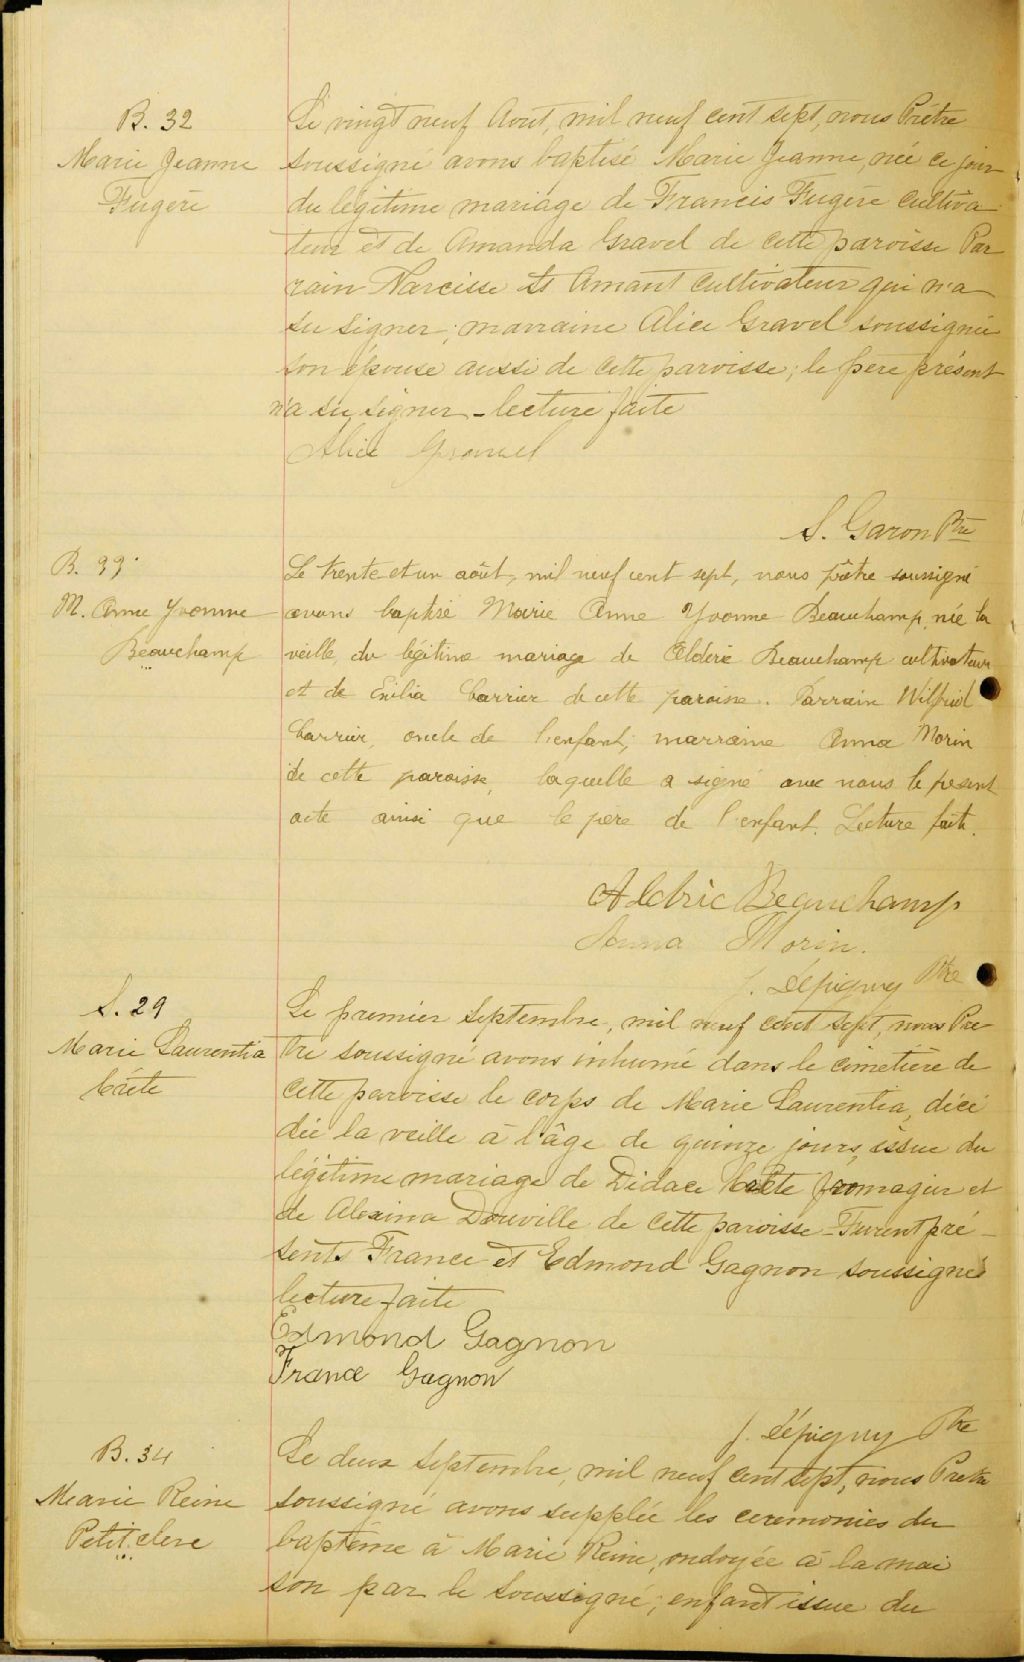 B. 32
Marie Jeanne
Fugère
Le vingt neuf Aout, mil neuf cent sept, nous Prêtre
soussigné avons baptisé Marie Jeanne, née ce jour
du légitime mariage de Francis Fugère cultiva
teur et de Amanda Gravel de cette paroisse Par
rain Narcisse St Amant cultivateur qui n'a
su signer; marraine Alice Gravel soussignée
son épouse aussi de cette paroisse; le père présent
n'a su signer - lecture faite
Alice Gravel
S. Garon Ptre
B. 33
M. Anne Yvonne
Beauchamp
Le trente et un août, mil neuf cent sept, nous prêtre soussigné
avons baptisé Marie Anne Yvonne Beauchamp, née la
veille, du légitime mariage de Alderic Beauchamp cultivateur
et de Emilia Carrier de cette paroisse. Parrain Wilfrid
Carrier, oncle de l'enfant; marraine Anna Morin
de cette paroisse, laquelle a signé avec nous le présent
acte ainsi que le père de l'enfant. Lecture faite.
Aldric Beauchamp
Anna Morin.
J. Lépigny Ptre
S. 29
Marie Laurentia
Caète
Le premier Septembre, mil neuf cent sept, nous Prê
tre soussigné avons inhumé dans le cimetière de
cette paroisse le corps de Marie Laurentia, décé
dée la veille à l'âge de quinze jours, issue du
légitime mariage de Didace Caète fromager et
de Alexina Douville de cette paroisse - Furent pré
sents France et Edmond Gagnon soussignés
lecture faite
Edmond Gagnon
France Gagnon
J. Lépigny Ptre
B. 34
Marie Reine
Petit clerc
Le deux Septembre, mil neuf cent sept, nous Pretre
soussigné avons supplée les ceremonies du
baptême à Marie Reine, ondoyée à la mai
son par le Soussigné; enfant issue du